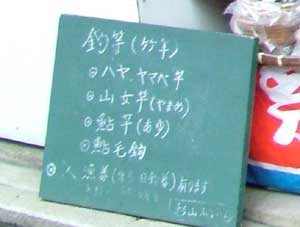 釣竿(竹竿)
◎ハヤ、ヤマベ竿
◎山女竿(やまめ)
◎鮎竿(あゆ)
◎鮎毛鈎
◎入漁券(年券 日釣券)有ります